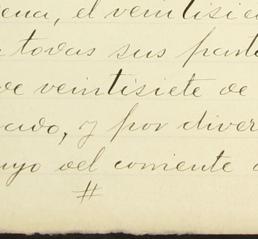 ena, el veintisie
todas sus parti
de veintisiete de
ado, y por diver
uyo del corriente
#